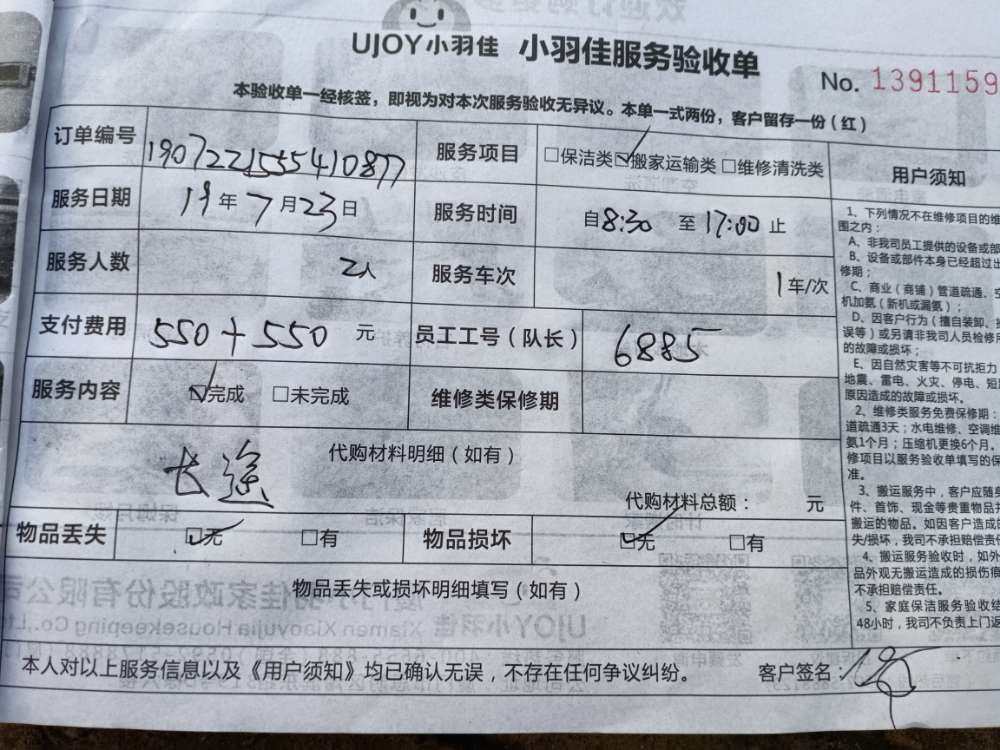 UJOY小羽佳 小羽佳服务验收单
No. 1391159
本验收单一经核签，即视为对本次服务验收无异议。本单一式两份，客户留存一份（红）
订单编号 服务项目 □保洁类 ☑搬家运输类 □维修清洗类
服务日期 19年7月23日 服务时间 自8:30 至17:00止
服务人数 2人 服务车次 1车/次
支付费用 550+550 元 员工工号（队长） 6885
服务内容 ☑完成 □未完成 维修类保修期
代购材料明细（如有）
长途
代购材料总额： 元
物品丢失 ☑无 □有 物品损坏 ☑无 □有
物品丢失或损坏明细填写（如有）
本人对以上服务信息以及《用户须知》均已确认无误，不存在任何争议纠纷。 客户签名：
用户须知
1、下列情况不在维修项目的维
围之内：
A、非我司员工提供的设备或部
B、设备或部件本身已经超过出
修期；
C、商业（商铺）管道疏通、空
机加氨（新机或漏氨）；
D、因客户行为（擅自装卸、
误等）或另请非我司人员检修
的故障或损坏；
E、因自然灾害等不可抗拒力
地震、雷电、火灾、停电、短
原因造成的故障或损坏。
2、维修类服务免费保修期：
道疏通3天；水电维修、空调维
氨1个月；压缩机更换6个月。
修项目以服务验收单填写的保
准。
3、搬运服务中，客户应随身
件、首饰、现金等贵重物品
搬运的物品。如因客户造成
失/损坏，我司不承担赔偿责
4、搬运服务验收时，如外
品外观无搬运造成的损伤痕
不承担赔偿责任。
5、家庭保洁服务验收结
48小时，我司不负责上门返